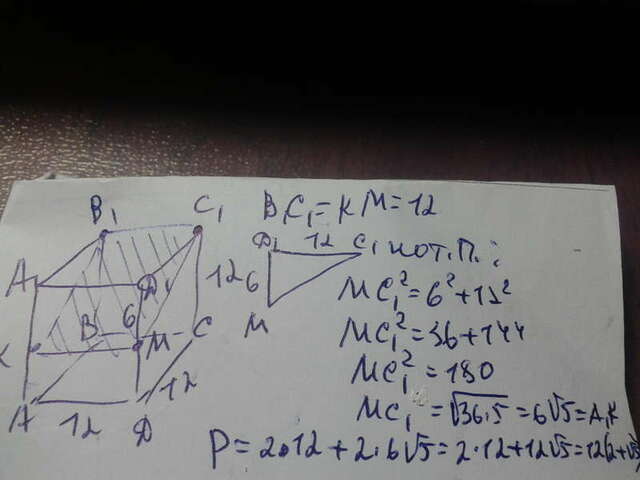 B₁C₁ = KM = 12
B₁ C₁
A₁ D₁ 12
K B 6 M C
A 12 D 12
D₁ 12 C₁
6
M
по т.П.:
MC₁² = 6² + 12²
MC₁² = 36 + 144
MC₁² = 180
MC₁ = √36·5 = 6√5 = A₁K
P = 2·12 + 2·6√5 = 2·12 + 12√5 = 12(2+√5